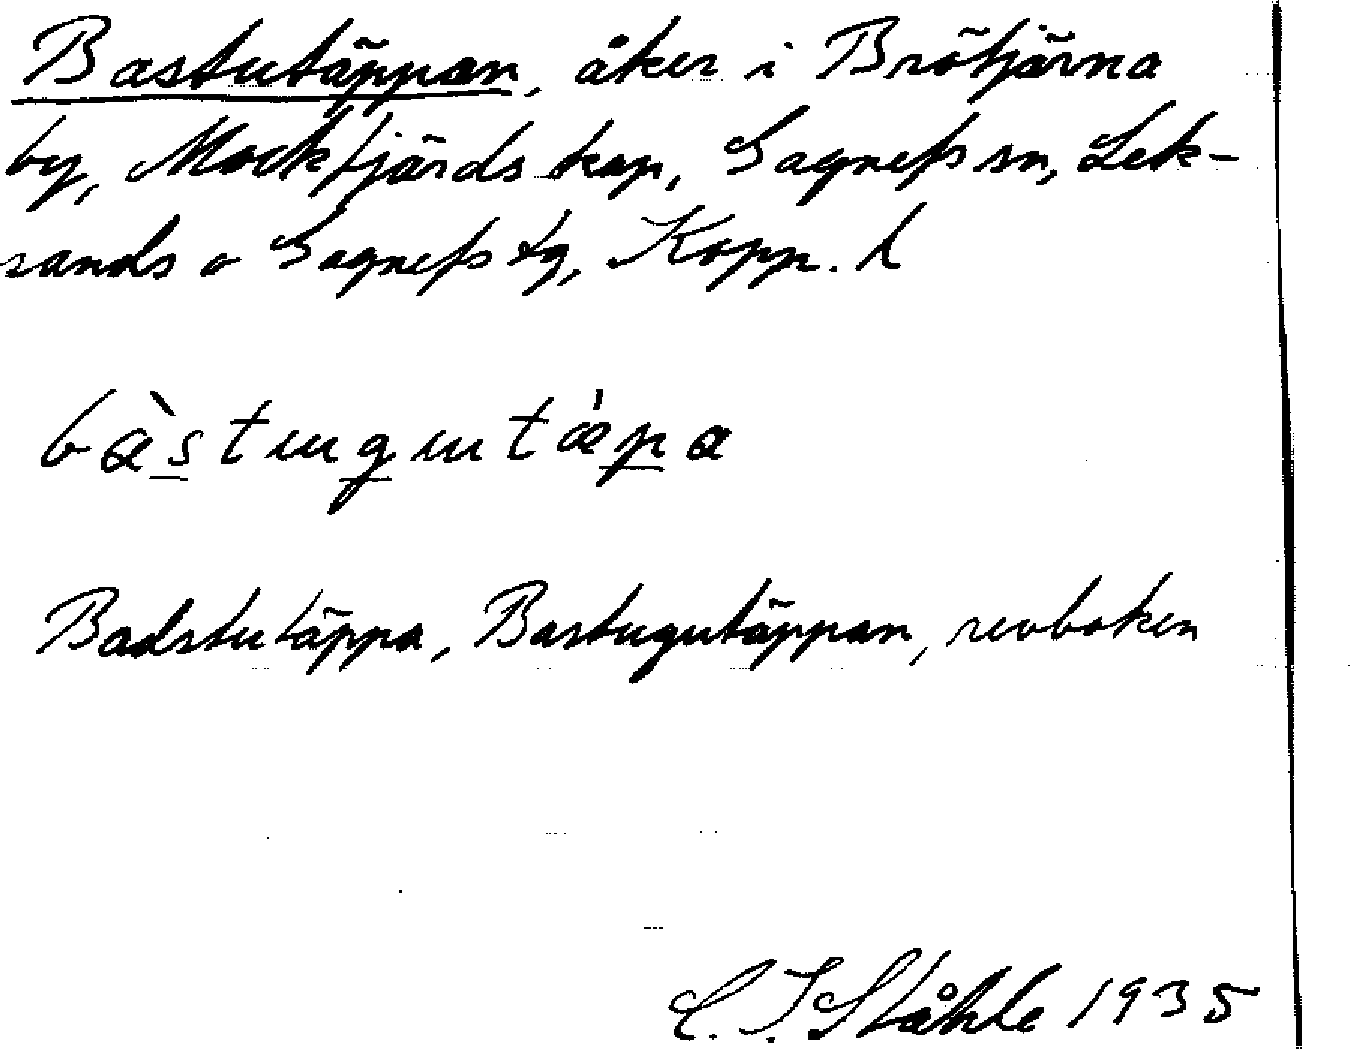 Bastutäppan, åker i Brötjärna
by, Mockfjärds kap, Gagnefs sn, Lek-
sands o Gagnefs tg, Kopp. l
bàstugutǽpa
Badstutäppa, Bastugutäppan, revboken
C. I. Ståhle 1935